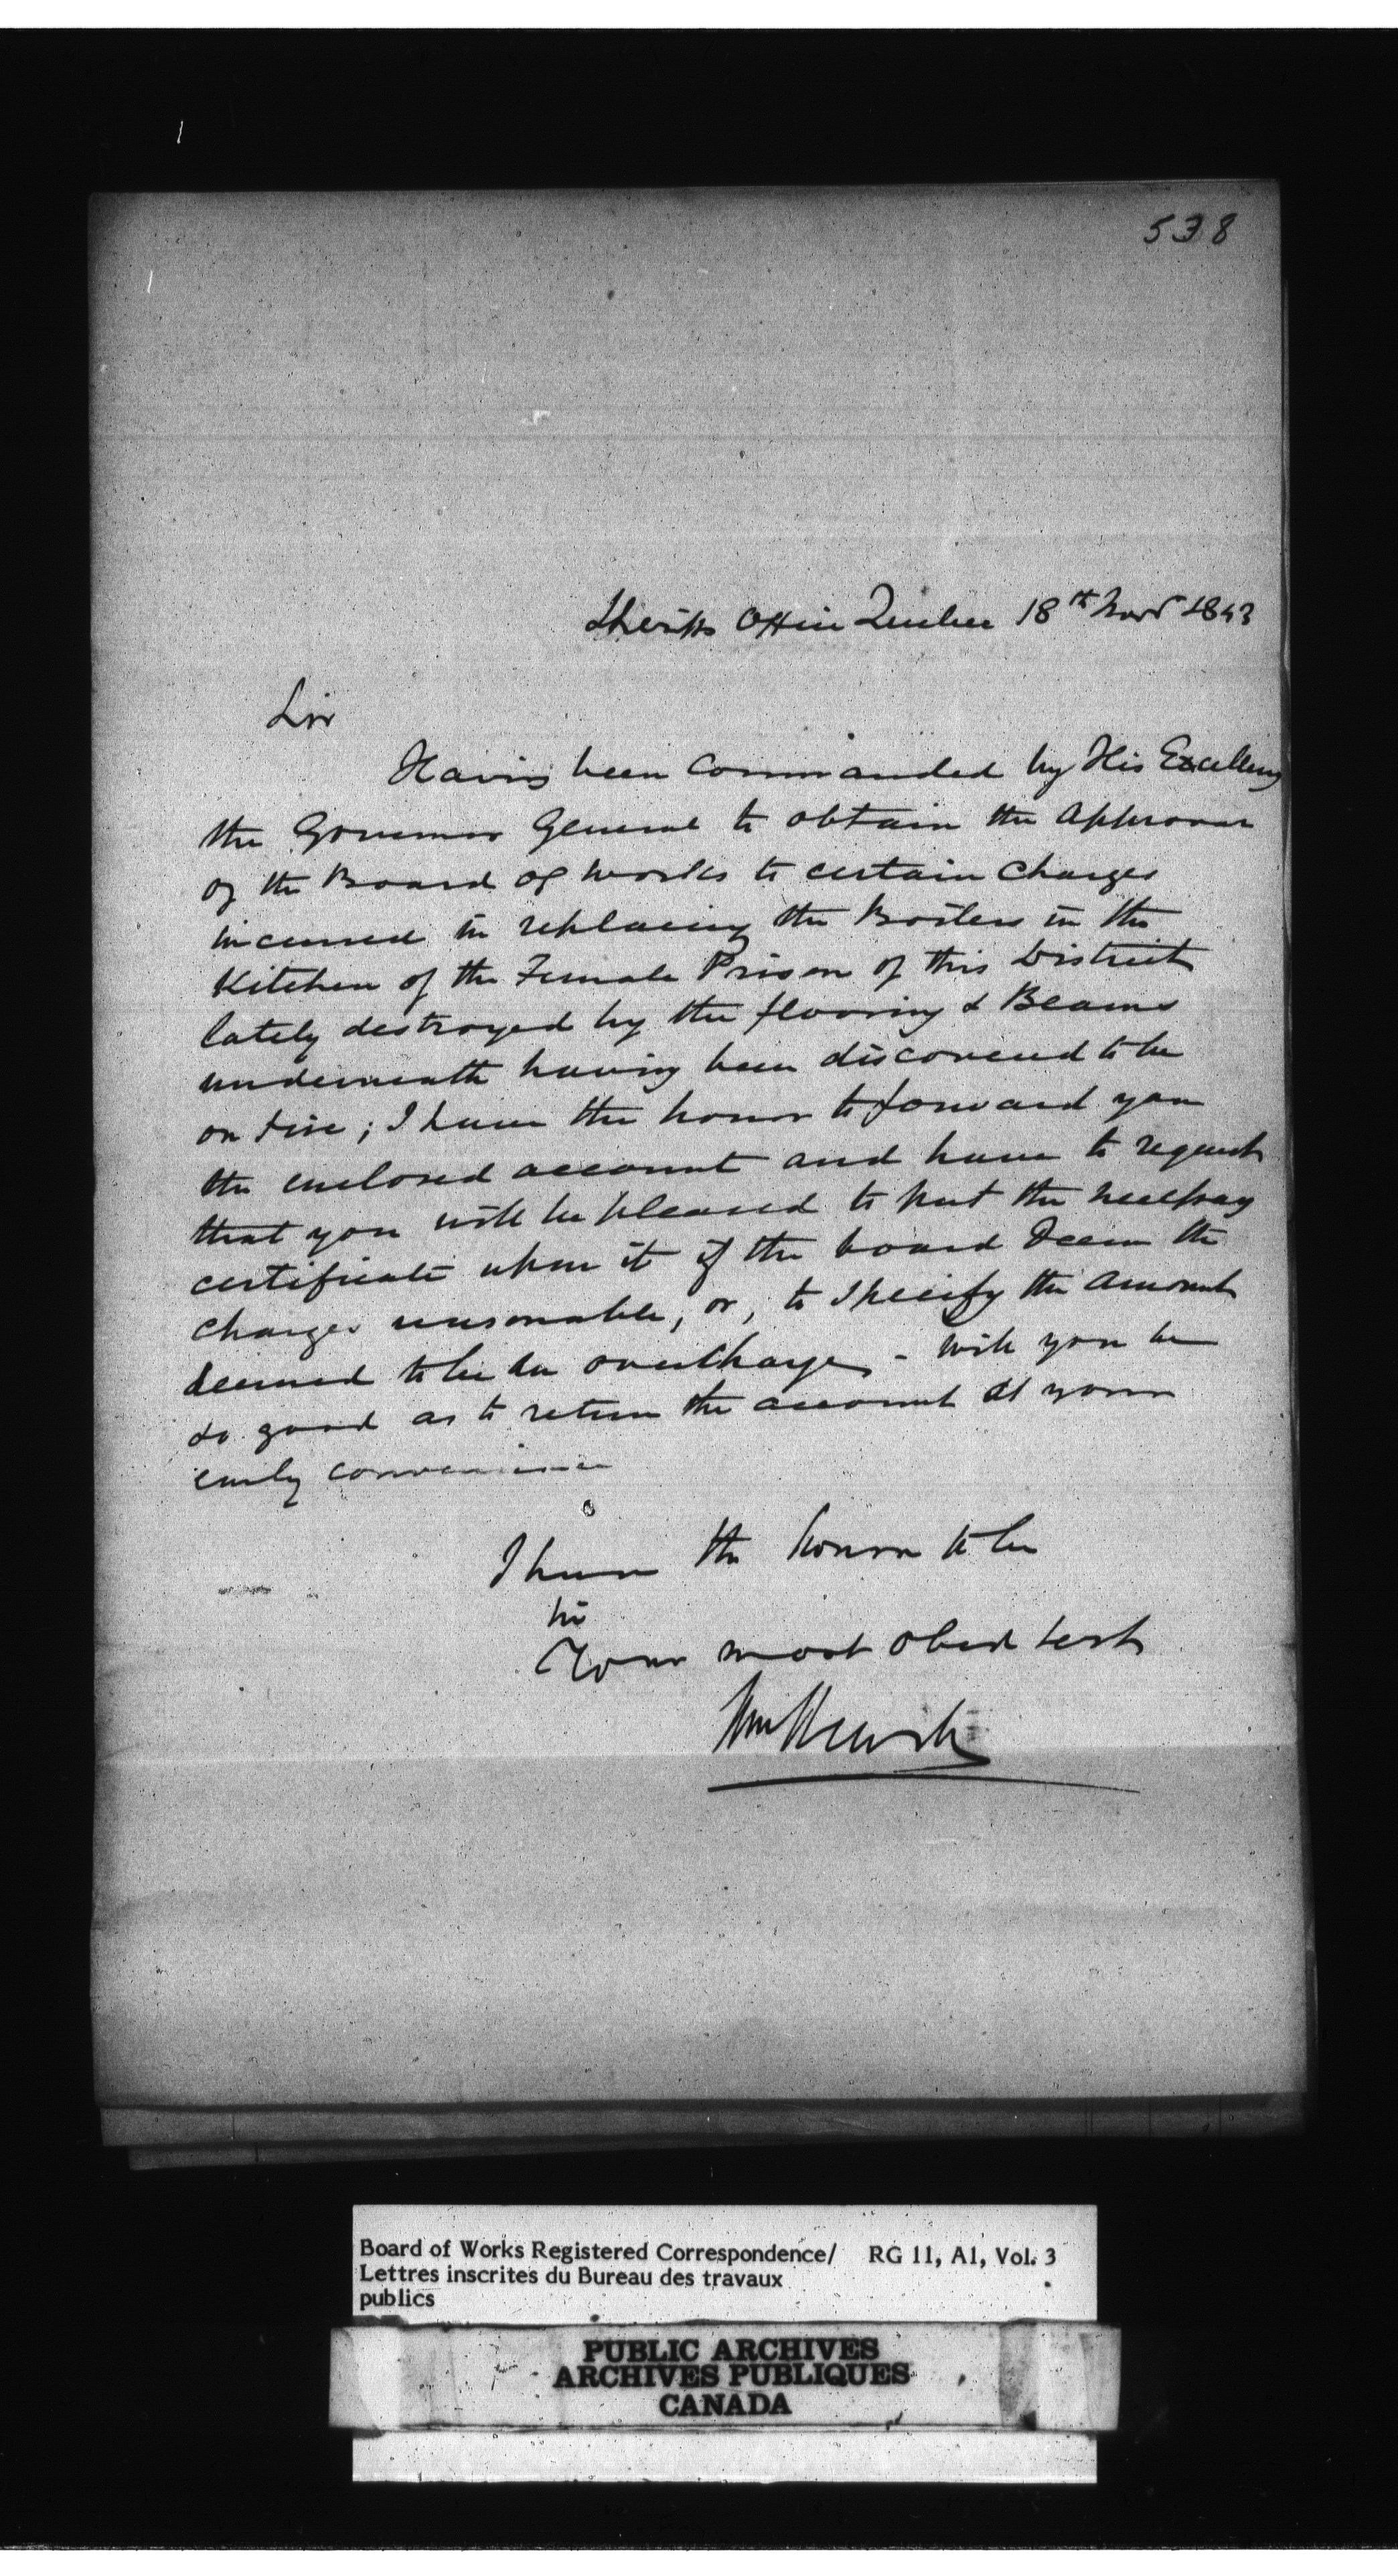 538
Sheriffs Office Quebec 18th Novr 1843
Sir
Having been Commanded by His Excellency
the Governor General to obtain the Approval
of the Board of Works to certain Charges
incurred in replacing the Boilers in the
Kitchen of the Female Prison of this District
lately destroyed by the flooring & Beams
underneath having been discovered to be
on fire; I have the honor to forward you
the enclosed account and have to request
that you will be pleased to put the necessary
certificate upon it if the board deem the
charges reasonable, or, to specify the amount
deemed to be an overcharge - Will you be
so good as to return the account at your
early convenience
I have the honor to be
Sir
Your most obed Servt
Board of Works Registered Correspondence/ RG 11, A1, Vol. 3
Lettres inscrites du Bureau des travaux
publics
PUBLIC ARCHIVES
ARCHIVES PUBLIQUES
CANADA